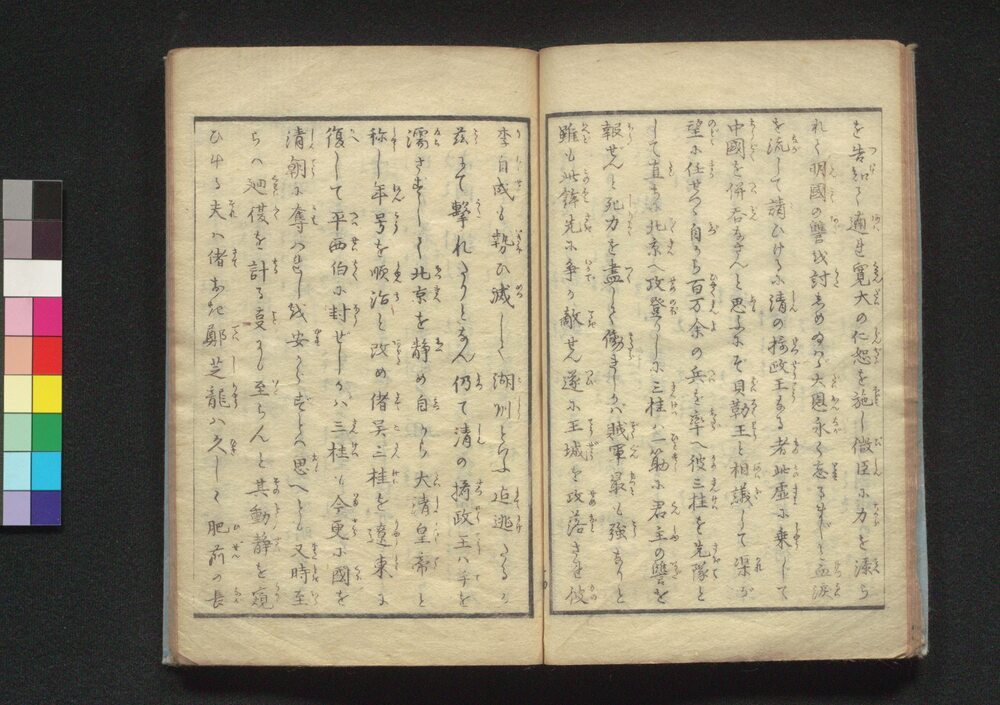 を告知る適せ寛大の仁恕を施し微臣に力を添ら
れて明國の讐を討しめ給はゞ大恩永く忘るまじと血涙
を流して請ひけるに清の摂政王なる者此虚に乗じて
中國を併呑なさんと思ふにぞ貝勒王と相議して渠が
望に任せつゝ自から百万余の兵を率へ彼三桂を先隊と
して直ちに北京へ攻登りしに三桂ハ一筋に君主の讐を
報ぜんと死力を盡して働きしかバ賊軍最も強なりと
雖も此鉾先に争か敵せん遂に王城を攻落され彼
李自成も勢ひ滅して湖州と云ふ迄逃たるが
茲にて撃れたりとなん仍て清の摂政王ハ手を
濡さずして北京を静め自から大清皇帝と
称し年号を順治と改め偖呉三桂を遼東に
復して平西伯に封ぜしかバ三桂も今更に國を
清朝に奪ハれしを安からずとハ思へども又時至
らバ廻復を計る事にも至らんと其動静を窺
ひ居る夫ハ偖おき鄭芝龍ハ久しく肥前の長